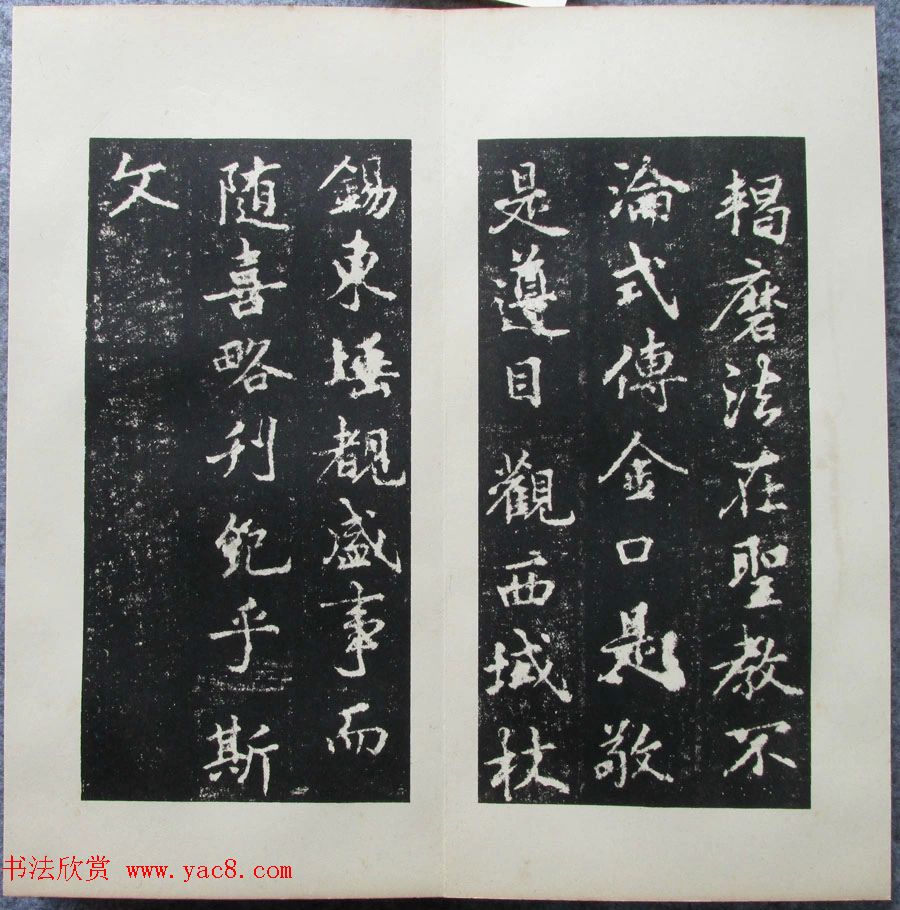 羯磨法在聖教不
淪式傳金口是敬
是遵目觀西域杖
錫東埵覩盛事而
隨喜略刊範乎斯
文
书法欣赏 www.yac8.com